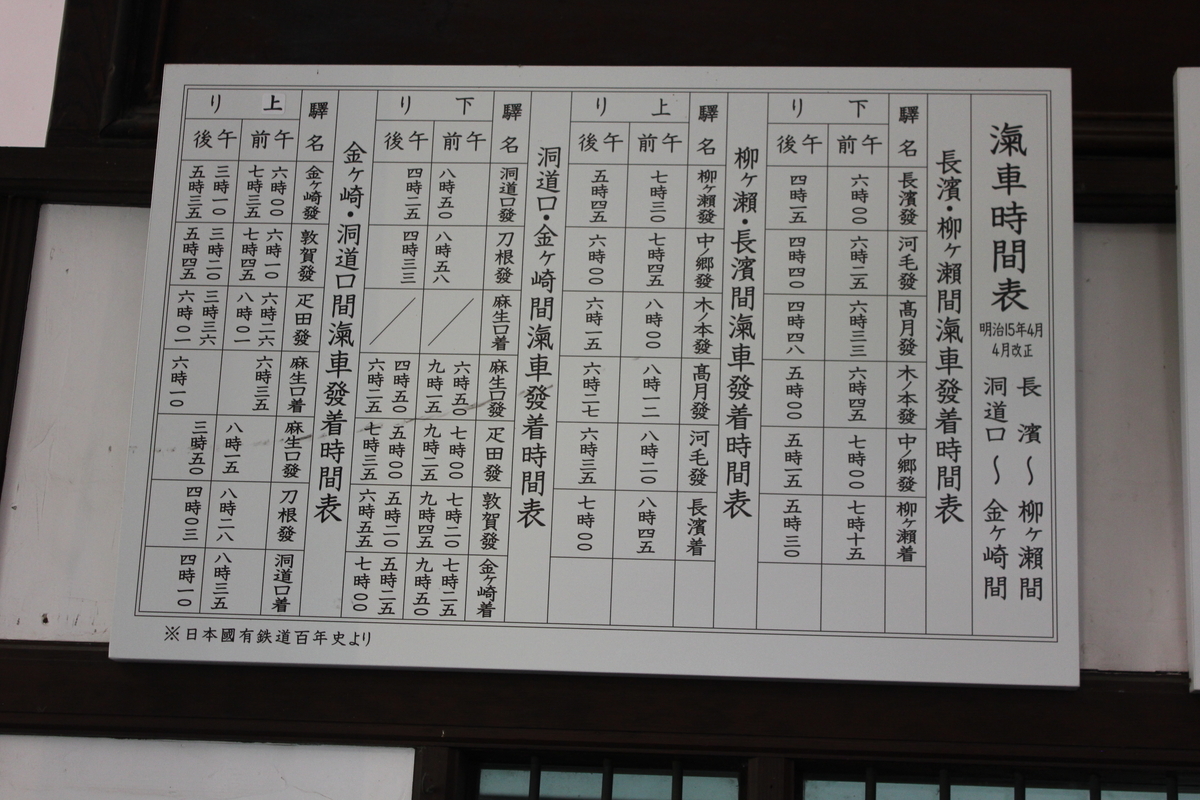 氣車時間表
明治15年4月
4月改正
長濱〜柳ヶ瀬間
洞道口〜金ヶ崎間
長濱・柳ヶ瀬間氣車發着時間表
驛名 長濱發 河毛發 髙月發 木ノ本發 中ノ郷發 柳ヶ瀬着
下り
午前 六時00 六時二五 六時三三 六時四五 七時00 七時十五
午後 四時一五 四時四0 四時四八 五時00 五時一五 五時三0
柳ヶ瀬・長濱間氣車發着時間表
驛名 柳ヶ瀬發 中ノ郷發 木ノ本發 髙月發 河毛發 長濱着
上り
午前 七時三0 七時四五 八時00 八時一二 八時二0 八時四五
午後 五時四五 六時00 六時一五 六時二七 六時三五 七時00
洞道口・金ヶ崎間氣車發着時間表
驛名 洞道口發 刀根發 麻生口着 麻生口發 疋田發 敦賀發 金ヶ崎着
下り
午前 六時五0 七時00 七時二0 七時二五
八時五0 八時五八 ／ 九時一五 九時二五 九時四五 九時五0
午後 四時二五 四時三三 ／ 四時五0 五時00 五時二0 五時二五
六時二五 七時三五 六時五五 七時00
金ヶ崎・洞道口間氣車發着時間表
驛名 金ヶ崎發 敦賀發 疋田發 麻生口着 麻生口發 刀根發 洞道口着
上り
午前 六時00 六時一0 六時二六 六時三五
七時三五 七時四五 八時0一 八時一五 八時二八 八時三五
午後 三時一0 三時二0 三時三六 三時五0 四時0三 四時一0
五時三五 五時四五 六時0一 六時一0
※日本國有鉄道百年史より